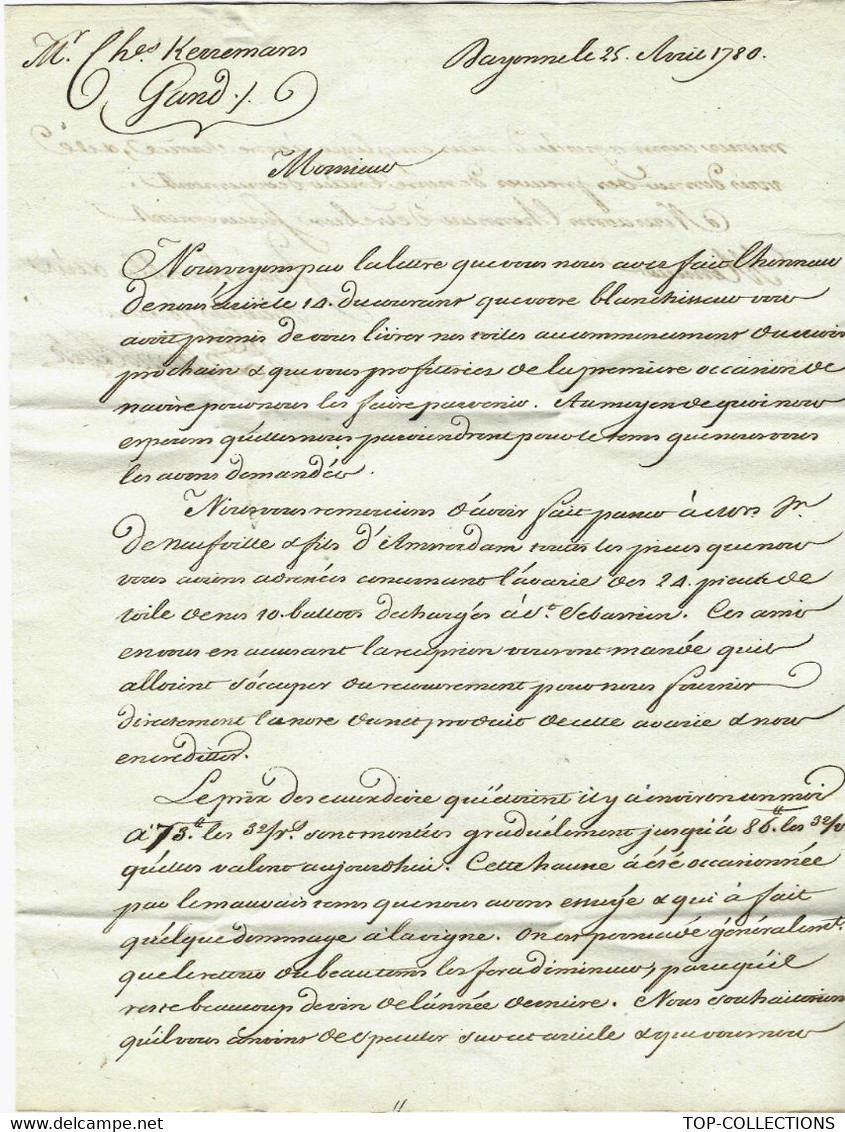 Mr. Ches Kerremans
Bayonne le 25. Avril 1780.
Gand ./.
Monsieur
Nous voyons par la lettre que vous nous avez fait l'honneur
de nous écrire le 14. du courant que votre blanchisseur vous
avoit promis de vous livrer nos toiles au commencement du mois
prochain & que vous profiteriez de la premiere occasion de
navire pour nous les faire parvenir. Au moyen de quoi nous
esperons qu'elles nous parviendront pour le tems que nous vous
les avons demandés.
Nous vous remercions d'avoir fait passer à Mrs. Jn.
De Neufville & fils d'Amsterdam toutes les pieces que nous
vous avions adressées concernant l'avarie des 24. pieces de
toile de nos 10. ballots dechargés à St. Sebastien. Ces amis
en vous en accusant la reception vous ont mandé qu'ils
alloient s'occuper du recouvrement pour nous fournir
directement la note du net produit de cette avarie & nous
en créditter.
Le prix des eaux de vie qui étoient il y a environ un mois
à 73.tt les 32/vs. sont montées graduélement jusqu'à 86.tt les 32/v
qu'elles valent aujourd'hui. Cette hausse à été occasionnée
par le mauvais tems que nous avons essuyé & qui à fait
quélque dommage à la vigne. On est persuadé généralemt.
que le retour du beau tems les fera diminuer, parcequ'il
reste beaucoup de vin de l'année derniere. Nous souhaiterions
qu'il vous convint de speculer sur cet article & que vous nous
TOP-COLLECTIONS